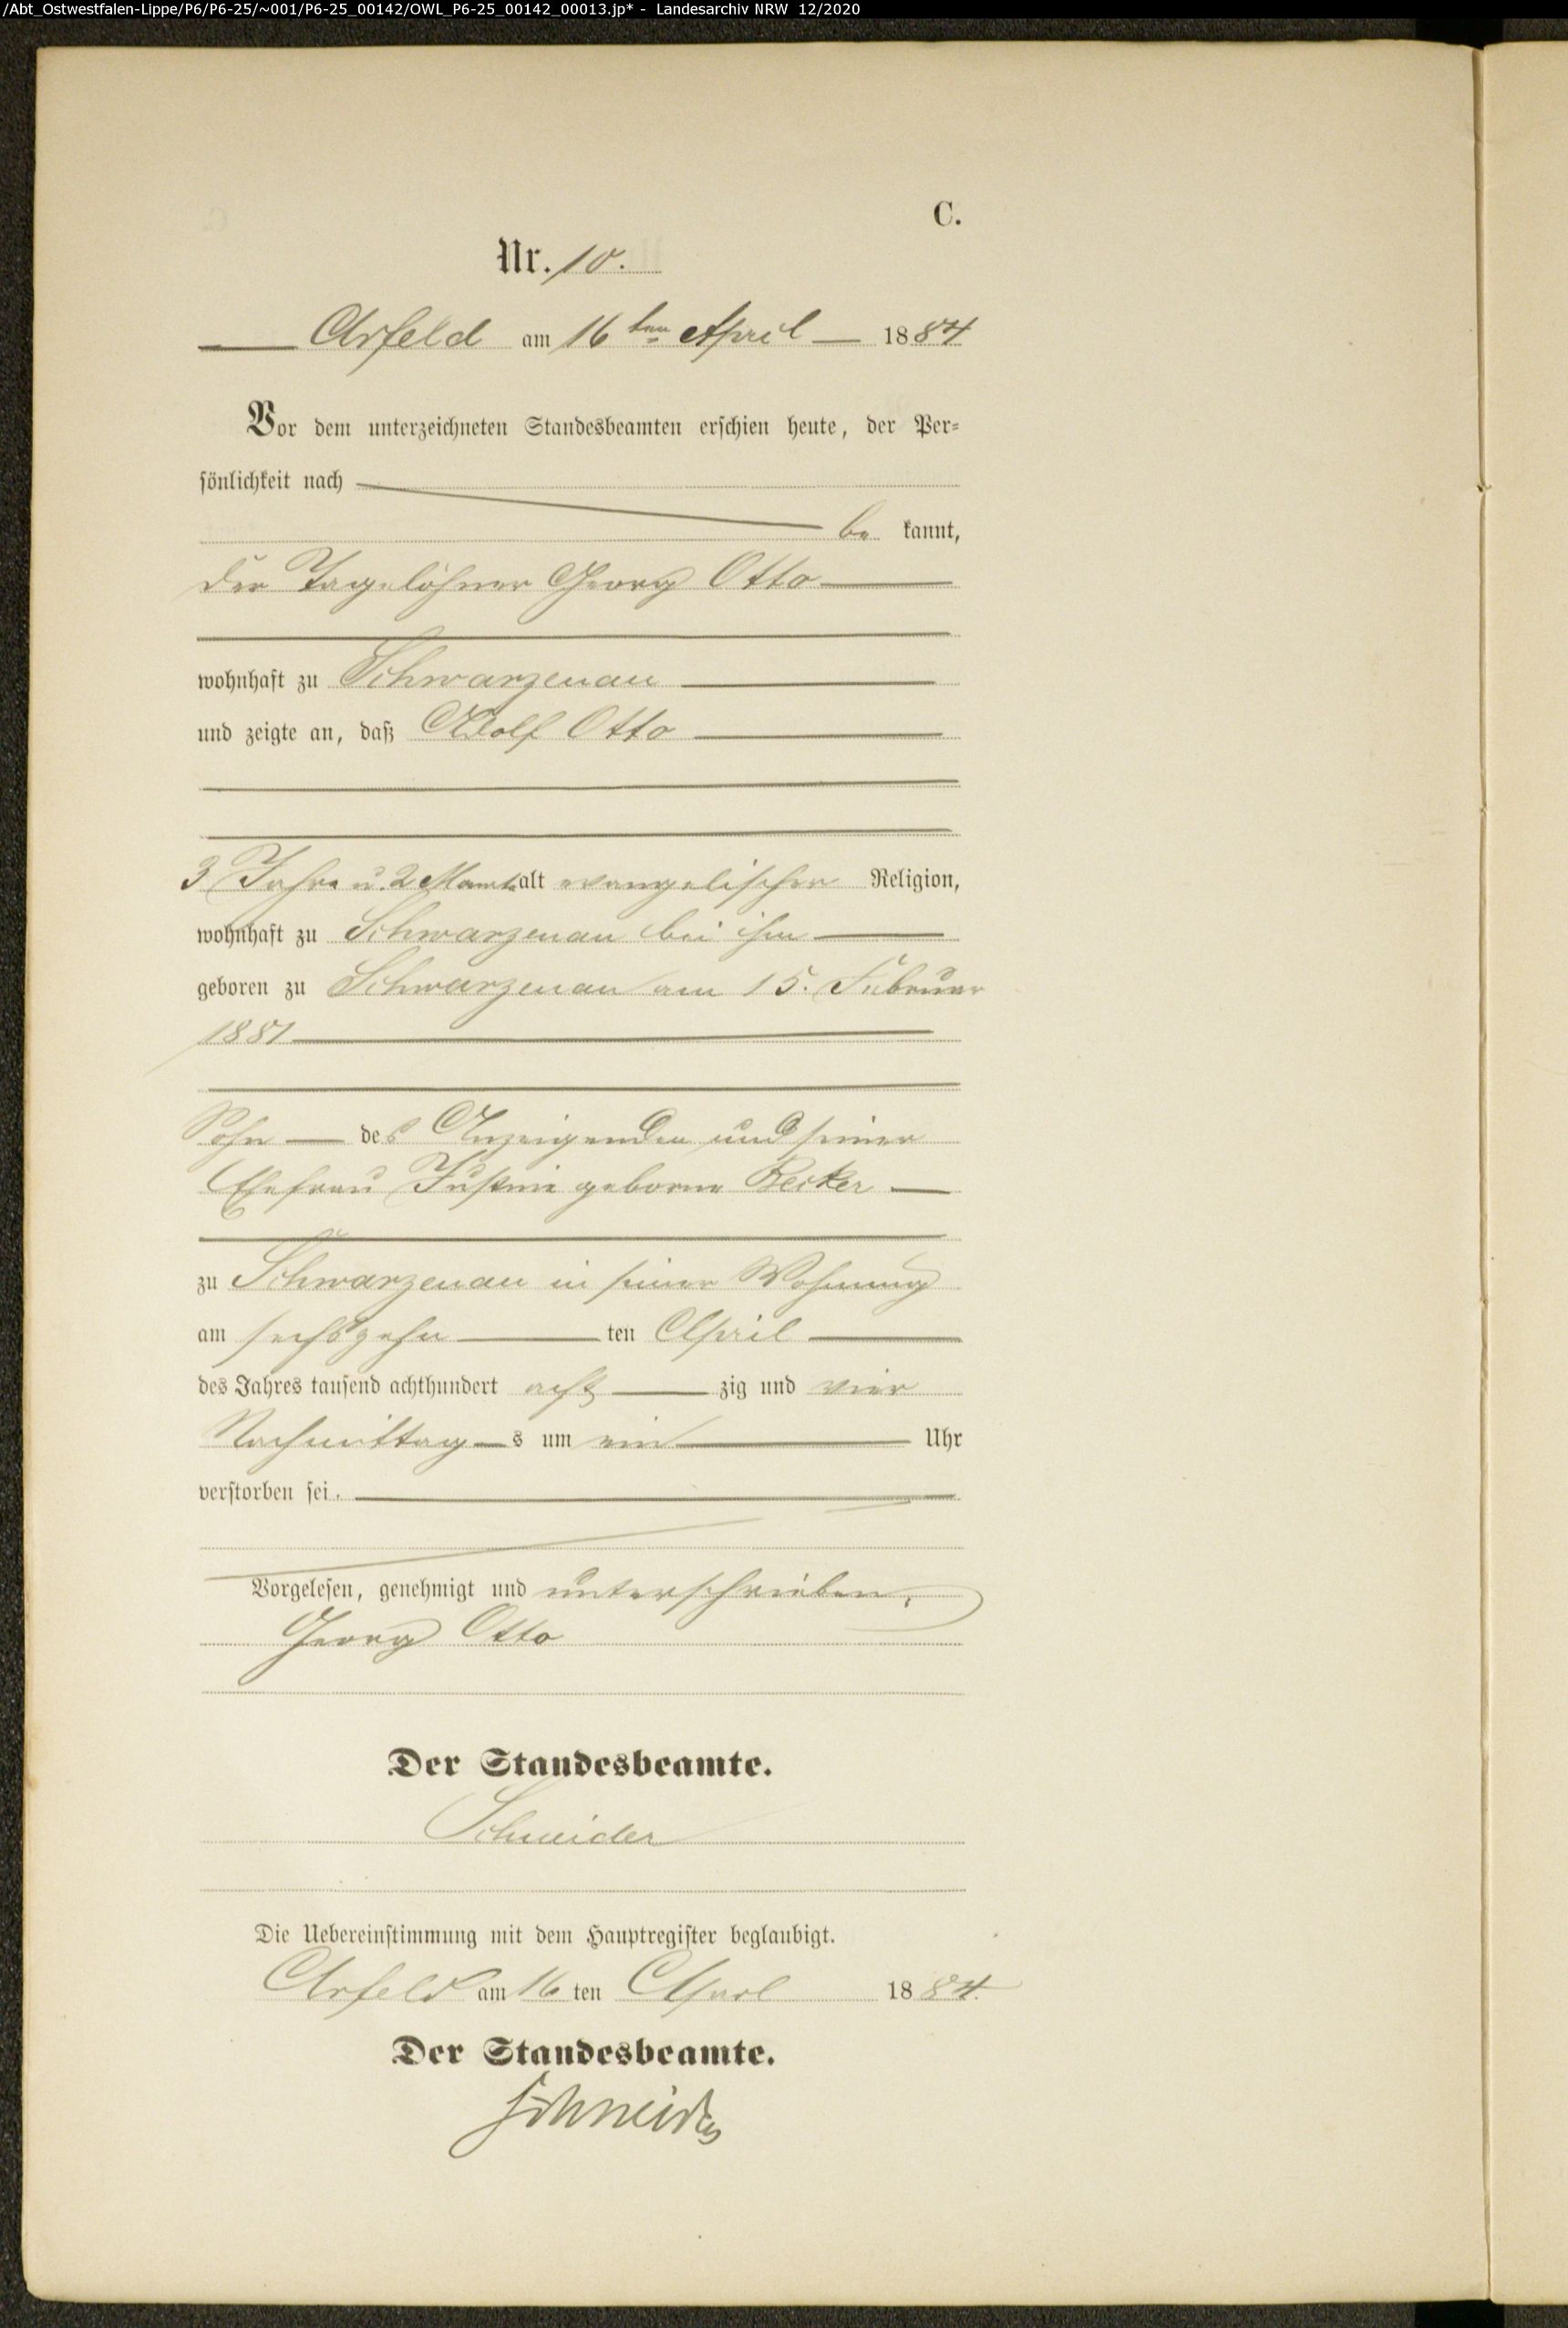 /Abt_Ostwestfalen-Lippe/P6/P6-25/~001/P6-25_00142/OWL_P6-25_00142_00013.jp* - Landesarchiv NRW 12/2020
C.
Nr. 10.
Arfeld am 16ten April 1884
Vor dem unterzeichneten Standesbeamten erschien heute, der Per-
sönlichkeit nach
be kannt,
der Tagelöhner Georg Otto
wohnhaft zu Schwarzenau
und zeigte an, daß Adolf Otto
3 Jahre u. 2 Monat alt evangelischer Religion,
wohnhaft zu Schwarzenau bei ihm
geboren zu Schwarzenau am 15. Februar
1881
Sohn des Anzeigenden und seiner
Ehefrau Justine geborne Becker
zu Schwarzenau in seiner Wohnung
am sechszehn ten April
des Jahres tausend achthundert acht zig und vier
Nachmittag s um ein Uhr
verstorben sei.
Vorgelesen, genehmigt und unterschrieben.
Georg Otto
Der Standesbeamte.
Schneider
Die Uebereinstimmung mit dem Hauptregister beglaubigt.
Arfeld am 16 ten April 1884.
Der Standesbeamte.
Schneider